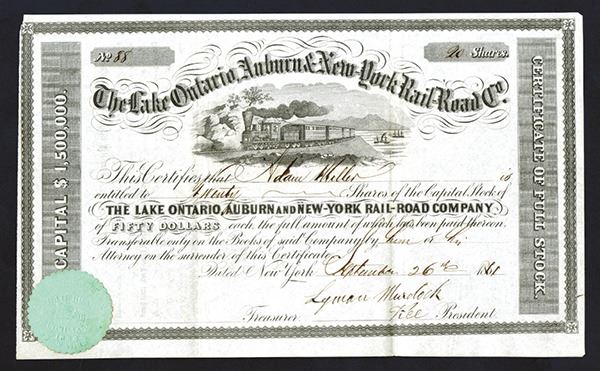 No 88
20 Shares.
The Lake Ontario, Auburn & New-York Rail-Road Co.
CAPITAL $1,500,000.
CERTIFICATE OF FULL STOCK.
This Certifies that Adam Miller is
entitled to Twenty Shares of the Capital Stock of
THE LAKE ONTARIO, AUBURN AND NEW-YORK RAIL-ROAD COMPANY
of FIFTY DOLLARS each, the full amount of which has been paid thereon.
Transferable only on the Books of said Company by him or his
Attorney on the surrender of this Certificate
Dated New York September 26th
Lyman Murdock
Treasurer. President.